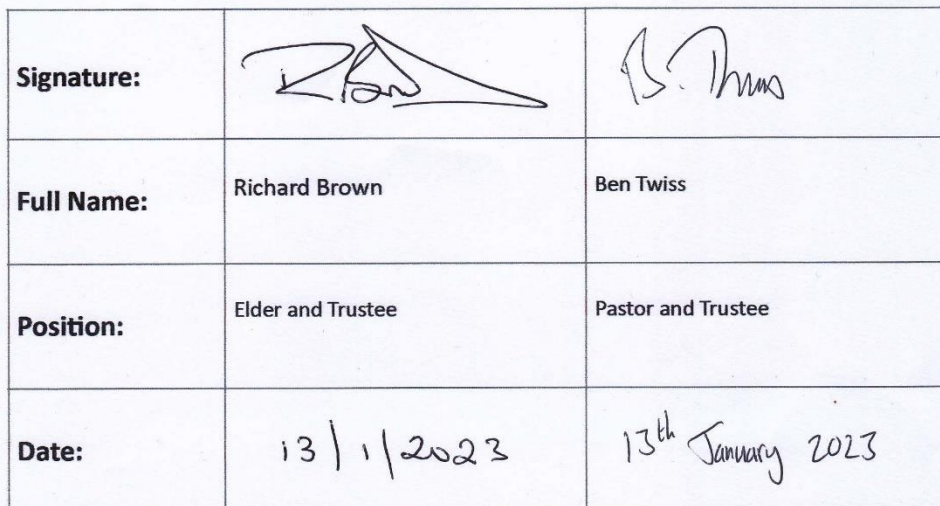 Signature:
B.
Full Name: Richard Brown Ben Twiss
Position: Elder and Trustee Pastor and Trustee
Date: 13/1/2023 13th January 2023